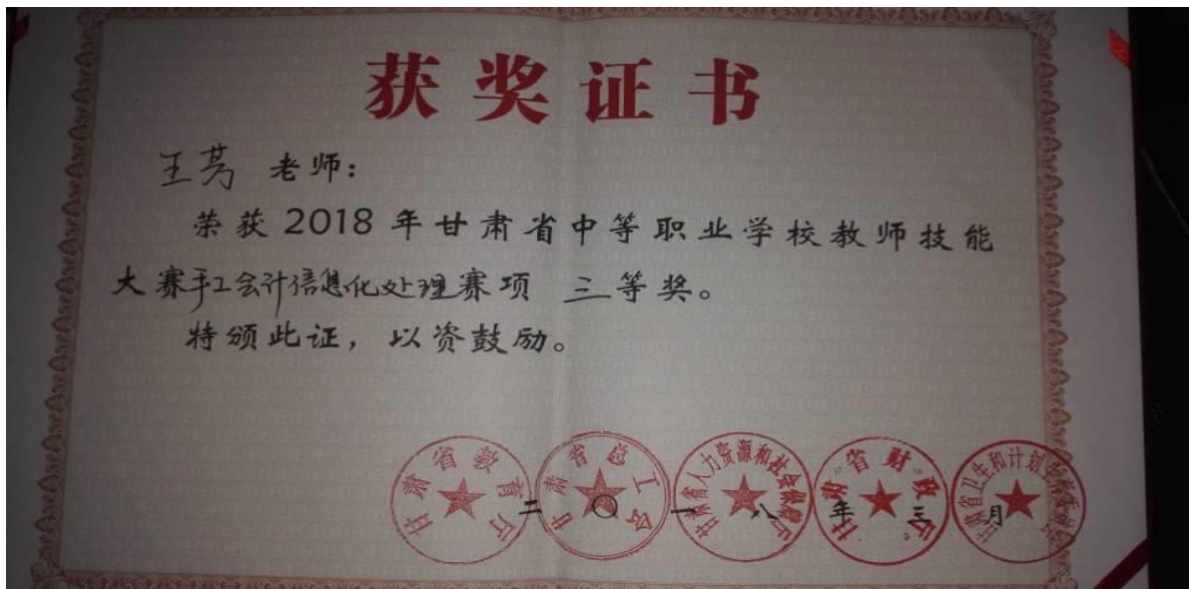 获奖证书
王芳 老师：
荣获2018年甘肃省中等职业学校教师技能
大赛手工会计信息化处理赛项 三等奖。
特颁此证，以资鼓励。
甘肃省教育厅
甘肃省总工会
甘肃省人力资源和社会保障厅
甘肃省财政厅
甘肃省卫生和计划生育委员会
二〇一八年三月